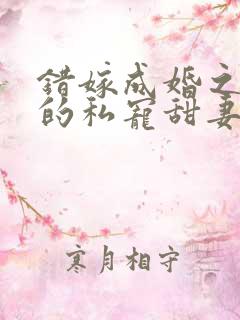 错嫁成婚之
的私宠甜妻
寒月相守